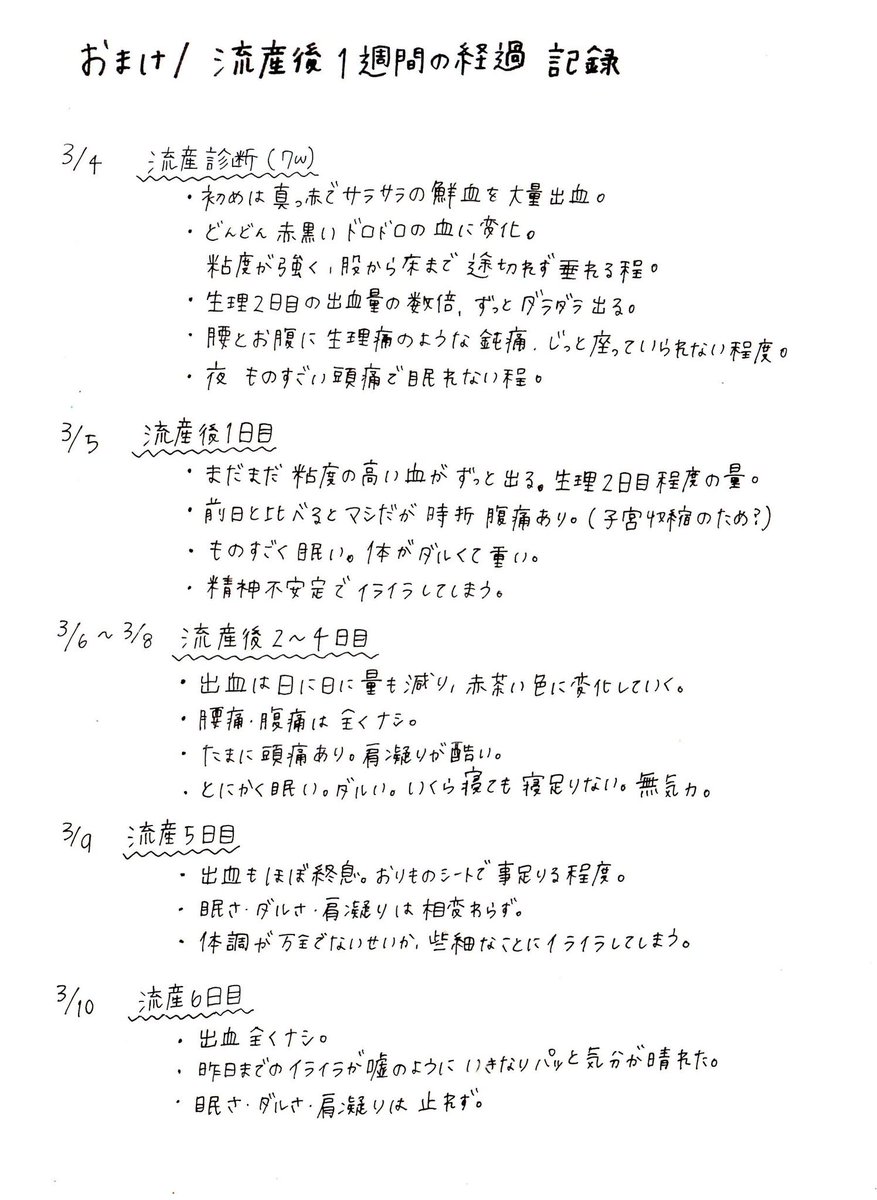 おまけ/ 流産後1週間の経過 記録
3/4 流産診断(7w)
・初めは真っ赤でサラサラの鮮血を大量出血。
・どんどん赤黒いドロドロの血に変化。
粘度が強く、股から床まで途切れず垂れる程。
・生理2日目の出血量の数倍、ずっとダラダラ出る。
・腰とお腹に生理痛のような鈍痛、じっと座っていられない程度。
・夜 ものすごい頭痛で眠れない程。
3/5 流産後1日目
・まだまだ粘度の高い血がずっと出る。生理2日目程度の量。
・前日と比べるとマシだが時折腹痛あり。(子宮収縮のため?)
・ものすごく眠い。体がダルくて重い。
・精神不安定でイライラしてしまう。
3/6～3/8 流産後2～4日目
・出血は日に日に量も減り、赤茶い色に変化していく。
・腰痛・腹痛は全くナシ。
・たまに頭痛あり。肩凝りが酷い。
・とにかく眠い。ダルい。いくら寝ても寝足りない。無気力。
3/9 流産5日目
・出血もほぼ終息。おりものシートで事足りる程度。
・眠さ・ダルさ・肩凝りは相変わらず。
・体調が万全でないせいか、些細なことにイライラしてしまう。
3/10 流産6日目
・出血全くナシ。
・昨日までのイライラが嘘のようにいきなりパッと気分が晴れた。
・眠さ・ダルさ・肩凝りは止れず。